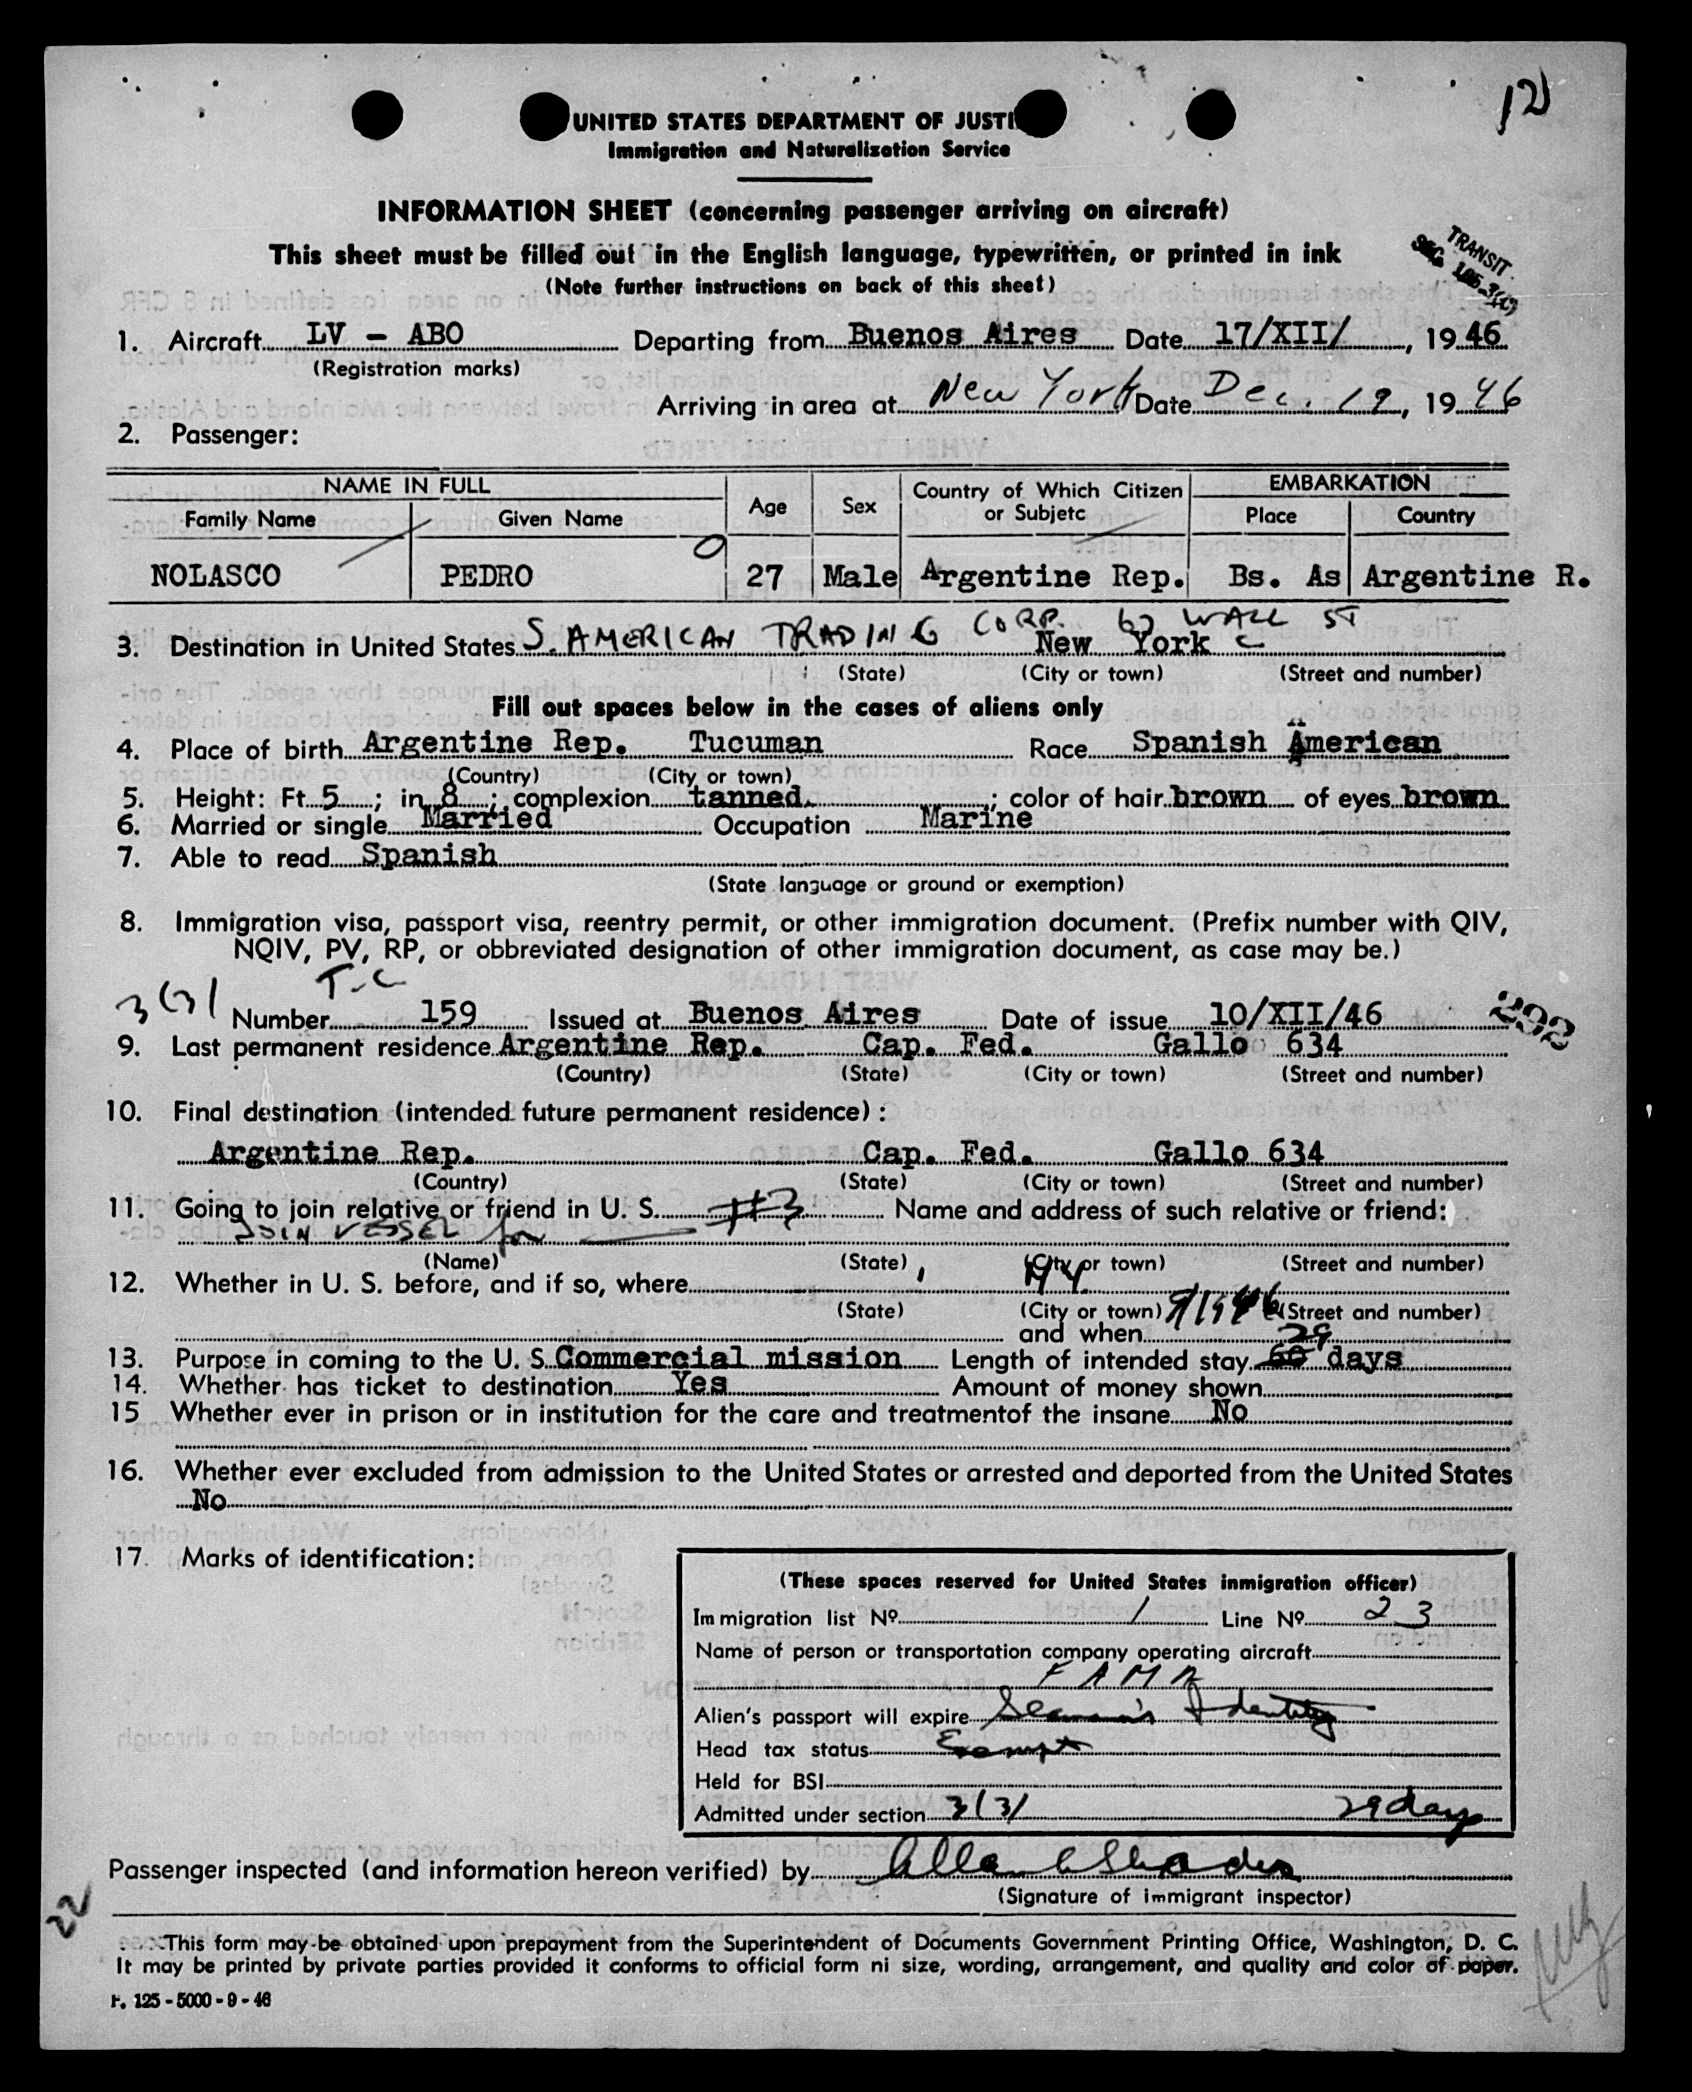 12
UNITED STATES DEPARTMENT OF JUSTI
Immigration and Naturalization Service
INFORMATION SHEET (concerning passenger arriving on aircraft)
This sheet must be filled out in the English language, typewritten, or printed in ink
(Note further instructions on back of this sheet)
TRANSIT
SEC. 165.3(C)
1. Aircraft LV - ABO Departing from Buenos Aires Date 17/XII/, 1946
(Registration marks)
Arriving in area at New York Date Dec. 19, 1946
2. Passenger:
NAME IN FULL Age Sex Country of Which Citizen or Subjetc EMBARKATION
Family Name Given Name Place Country
NOLASCO PEDRO 27 Male Argentine Rep. Bs. As Argentine R.
S. AMERICAN TRADING CORP. 67 WALL ST
3. Destination in United States New York
(State) (City or town) (Street and number)
Fill out spaces below in the cases of aliens only
4. Place of birth Argentine Rep. Tucuman Race Spanish American
(Country) (City or town)
5. Height: Ft. 5; in 8; complexion tanned. ; color of hair brown of eyes brown
6. Married or single Married Occupation Marine
7. Able to read Spanish
(State language or ground or exemption)
8. Immigration visa, passport visa, reentry permit, or other immigration document. (Prefix number with QIV,
NQIV, PV, RP, or obbreviated designation of other immigration document, as case may be.)
T-C
3(3) Number 159 Issued at Buenos Aires Date of issue 10/XII/46 292
9. Last permanent residence Argentine Rep. Cap. Fed. Gallo 634
(Country) (State) (City or town) (Street and number)
10. Final destination (intended future permanent residence):
Argentine Rep. Cap. Fed. Gallo 634
(Country) (State) (City or town) (Street and number)
11. Going to join relative or friend in U. S. #3 Name and address of such relative or friend:
JOIN VESSEL for
(Name) (State) (City or town) (Street and number)
12. Whether in U. S. before, and if so, where NY.
(State) (City or town) (Street and number)
and when 9/1946
13. Purpose in coming to the U. S. Commercial mission Length of intended stay 60 29 days
14. Whether has ticket to destination Yes Amount of money shown
15 Whether ever in prison or in institution for the care and treatmentof the insane No
16. Whether ever excluded from admission to the United States or arrested and deported from the United States
No
17. Marks of identification:
(These spaces reserved for United States inmigration officer)
Immigration list Nº 1 Line Nº 23
Name of person or transportation company operating aircraft
FAMA
Alien's passport will expire Seaman's Identity
Head tax status Exempt
Held for BSI
Admitted under section 3(3) 29 days
Passenger inspected (and information hereon verified) by
(Signature of immigrant inspector)
22
This form may be obtained upon prepayment from the Superintendent of Documents Government Printing Office, Washington, D. C.
It may be printed by private parties provided it conforms to official form ni size, wording, arrangement, and quality and color of paper.
F. 125 - 5000 - 9 - 46